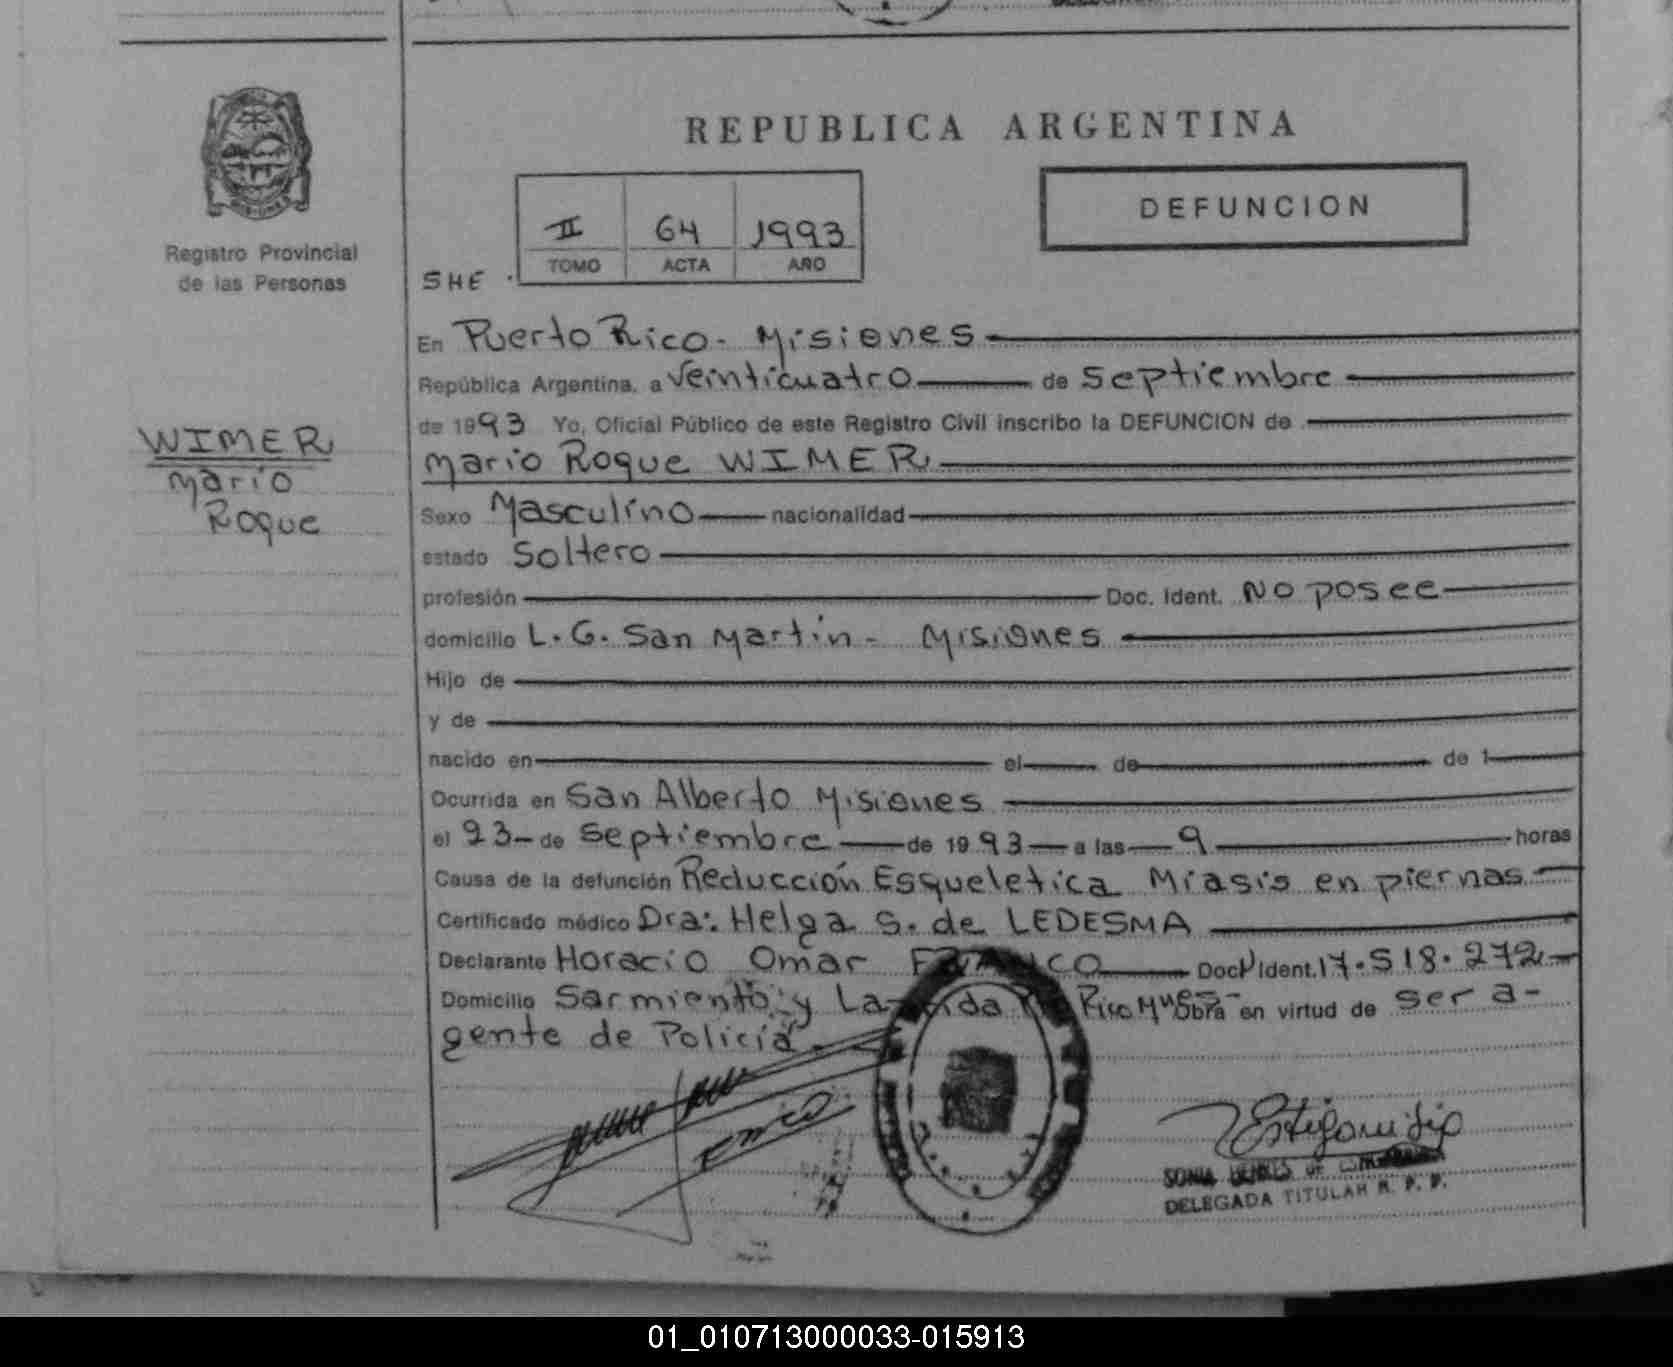 REPUBLICA ARGENTINA
DEFUNCION
II 64 1993
TOMO ACTA AÑO
Registro Provincial
de las Personas
SHE
En Puerto Rico - Misiones
República Argentina, a Veinticuatro de Septiembre
de 1993 Yo, Oficial Público de este Registro Civil inscribo la DEFUNCION de
WIMER
Mario
Roque
Mario Roque WIMER
Sexo Masculino nacionalidad
estado Soltero
profesión Doc. Ident. No posee
domicilio L.G. San Martin - Misiones
Hijo de
y de
nacido en el de de 1
Ocurrida en San Alberto Misiones
el 23 de Septiembre de 1993 a las 9 horas
Causa de la defunción Reducción Esqueletica Miasis en piernas
Certificado médico Dra: Helga S. de LEDESMA
Declarante Horacio Omar Doc. Ident. 17.518.272
Domicilio Sarmiento y Rico Mnes Obra en virtud de ser a-
gente de Policía.
SONIA DE
DELEGADA TITULAR R. P. P.
01_010713000033-015913